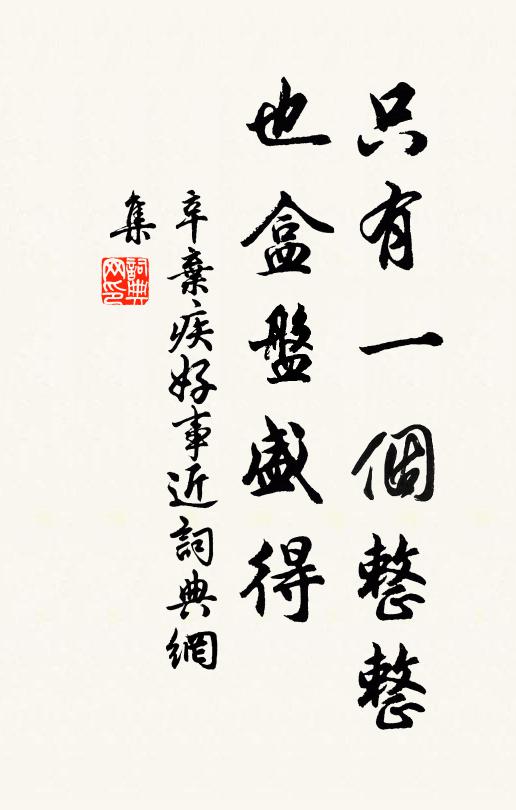 只有一個整整
也盒盤盛得
辛棄疾好事近詞典網
集
詞典
网印